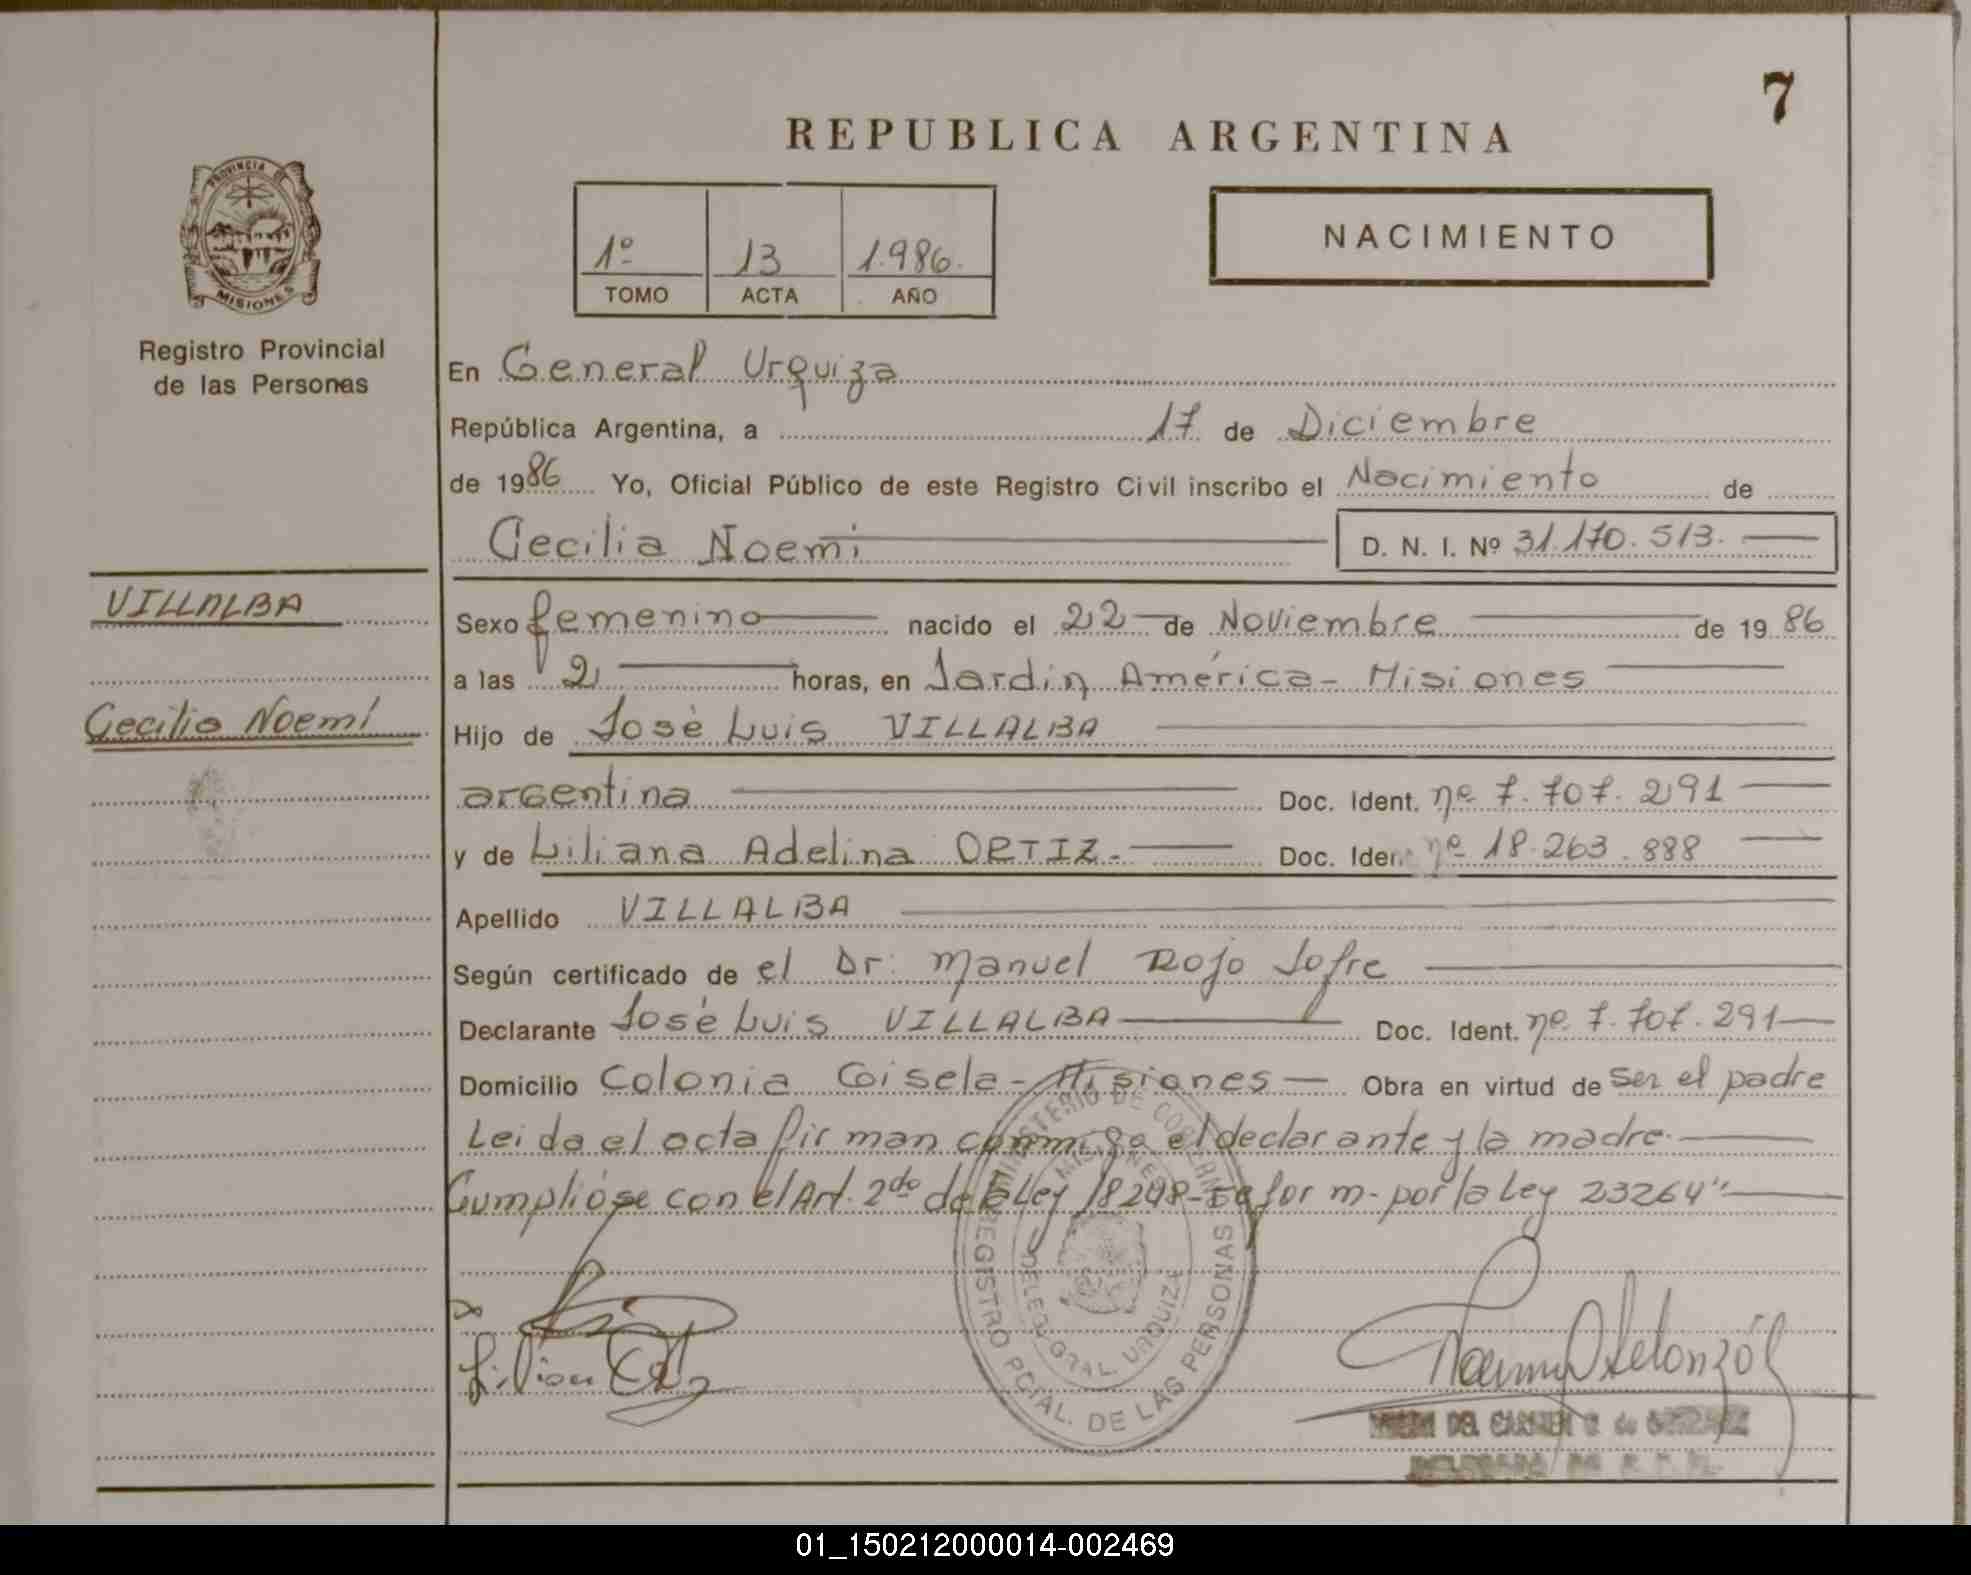 7
REPUBLICA ARGENTINA
PROVINCIA DE
MISIONES
Registro Provincial
de las Personas
1º 13 1.986.
TOMO ACTA AÑO
NACIMIENTO
En General Urquiza
República Argentina, a 17 de Diciembre
de 1986 Yo, Oficial Público de este Registro Civil inscribo el Nacimiento de
Cecilia Noemi D. N. I. Nº 31.170.513.
VILLALBA
Cecilia Noemí
Sexo femenino nacido el 22 de Noviembre de 1986
a las 2 horas, en Jardin América - Misiones
Hijo de José Luis VILLALBA
argentina Doc. Ident. nº 7.707.291
y de Liliana Adelina ORTIZ.- Doc. Iden nº 18.263.888
Apellido VILLALBA
Según certificado de el Dr. Manuel Rojo Jofre
Declarante José Luis VILLALBA Doc. Ident. nº 7.707.291
Domicilio Colonia Gisela - Misiones Obra en virtud de ser el padre
Leida el acta firman conmigo el declarante y la madre.
Cumplióse con el Art. 2do de la Ley 18248-reform-por la Ley 23264"
MINISTERIO DE GOBIERNO
MISIONES
DELEG. GRAL. URQUIZA
REGISTRO PCIAL. DE LAS PERSONAS
DEL CARMEN
01_150212000014-002469